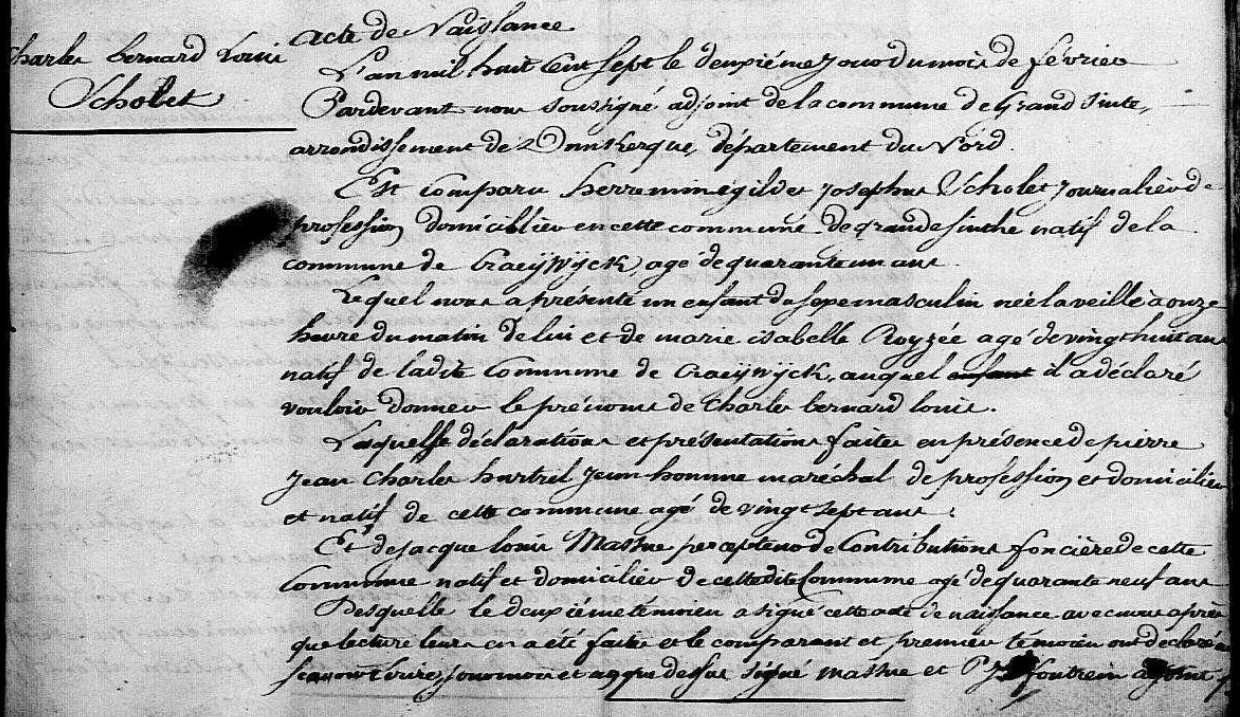 Charles bernard Louis
Scholet
acte de Naissance
L'an mil huit Cent Sept le deuxiéme jour du mois de février
Pardevant nous soussigné adjoint de la commune de Grand Sinte,
arrondissement de Dunkerque, département du Nord.
Est Comparu herreminégilde Josephus Scholet Journalier de
profession domicillier en cette commune de grande sinthe natif de la
commune de Craeywyck, agé de quarante un ans.
Lequel nous a présenté un enfant du sexe masculin née la veille à onze
heure du matin de lui et de marie isabelle Royzée agé de vingt huit ans
natif de ladite Commune de Craeywyck, auquel enfant il a déclaré
vouloir donner le prénoms de Charles bernard louis.
Laquelle déclarations et présentations faites en présence de pierre
Jean Charles hartrel jeun homme maréchal de profession et domicilier
et natif de cette commune agé de vingt sept ans
Et de jacque louis Massue percepteur de Contributions foncière de cette
Commune natif et domicilier de cette dite Commune agé de quarante neuf ans
Desquelle le deuxiéme témoien a signé cette acte de naissance avec nous après
que lecture leurs en a été faite et le comparant et premier témoien ont declaré
écrire, jour mois et an que dessus signé massue et fontrein adjoint